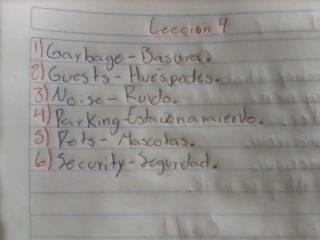 Leccion 4
1) Garbage - Basura.
2) Guests - Huespedes.
3) Noise - Ruido.
4) Parking - Estacionamiento.
5) Pets - Mascotas.
6) Security - Seguridad.